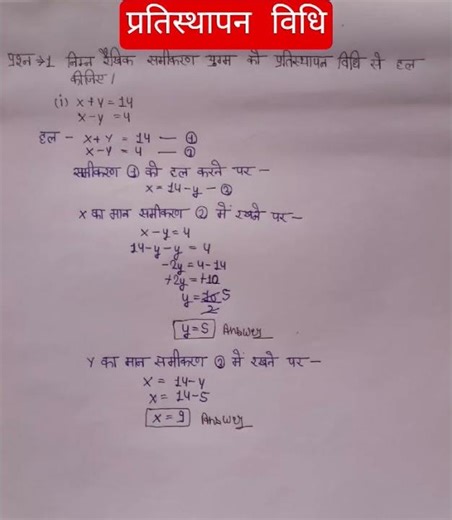 प्रतिस्थापन विधि
प्रश्न → 1 निम्न रैखिक समीकरण युग्म को प्रतिस्थापन विधि से हल
कीजिए।
(i) x + y = 14
x - y = 4
हल - x + y = 14 — ①
x - y = 4 — ②
समीकरण ① को हल करने पर -
x = 14 - y - ③
x का मान समीकरण ② में रखने पर -
x - y = 4
14 - y - y = 4
-2y = 4 - 14
+2y = +10
y = 10 5
2
y = 5 Answer
y का मान समीकरण ③ में रखने पर -
x = 14 - y
x = 14 - 5
x = 9 Answer